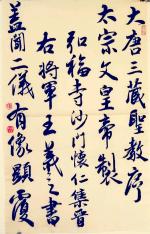 大唐三藏聖教序
太宗文皇帝製
弘福寺沙門懷仁集晉
右將軍王羲之書
蓋聞二儀有像顯覆